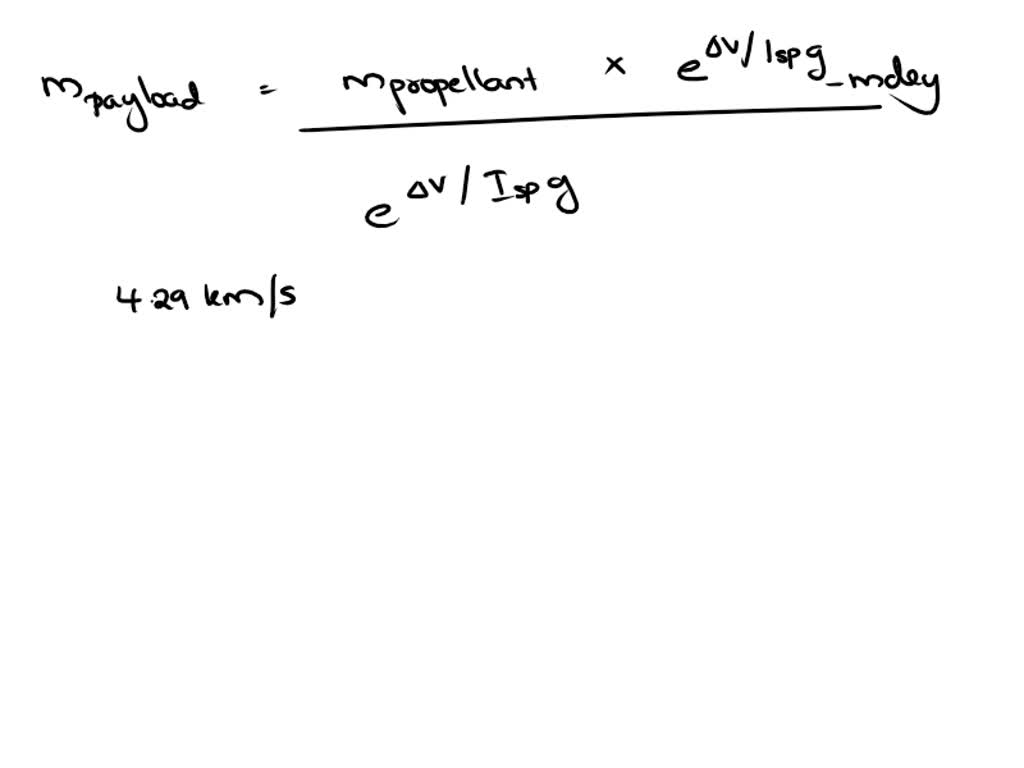 m payload = m propellant × e^ΔV/Isp g - mdey
e^ΔV/Isp g
4.29 km/s